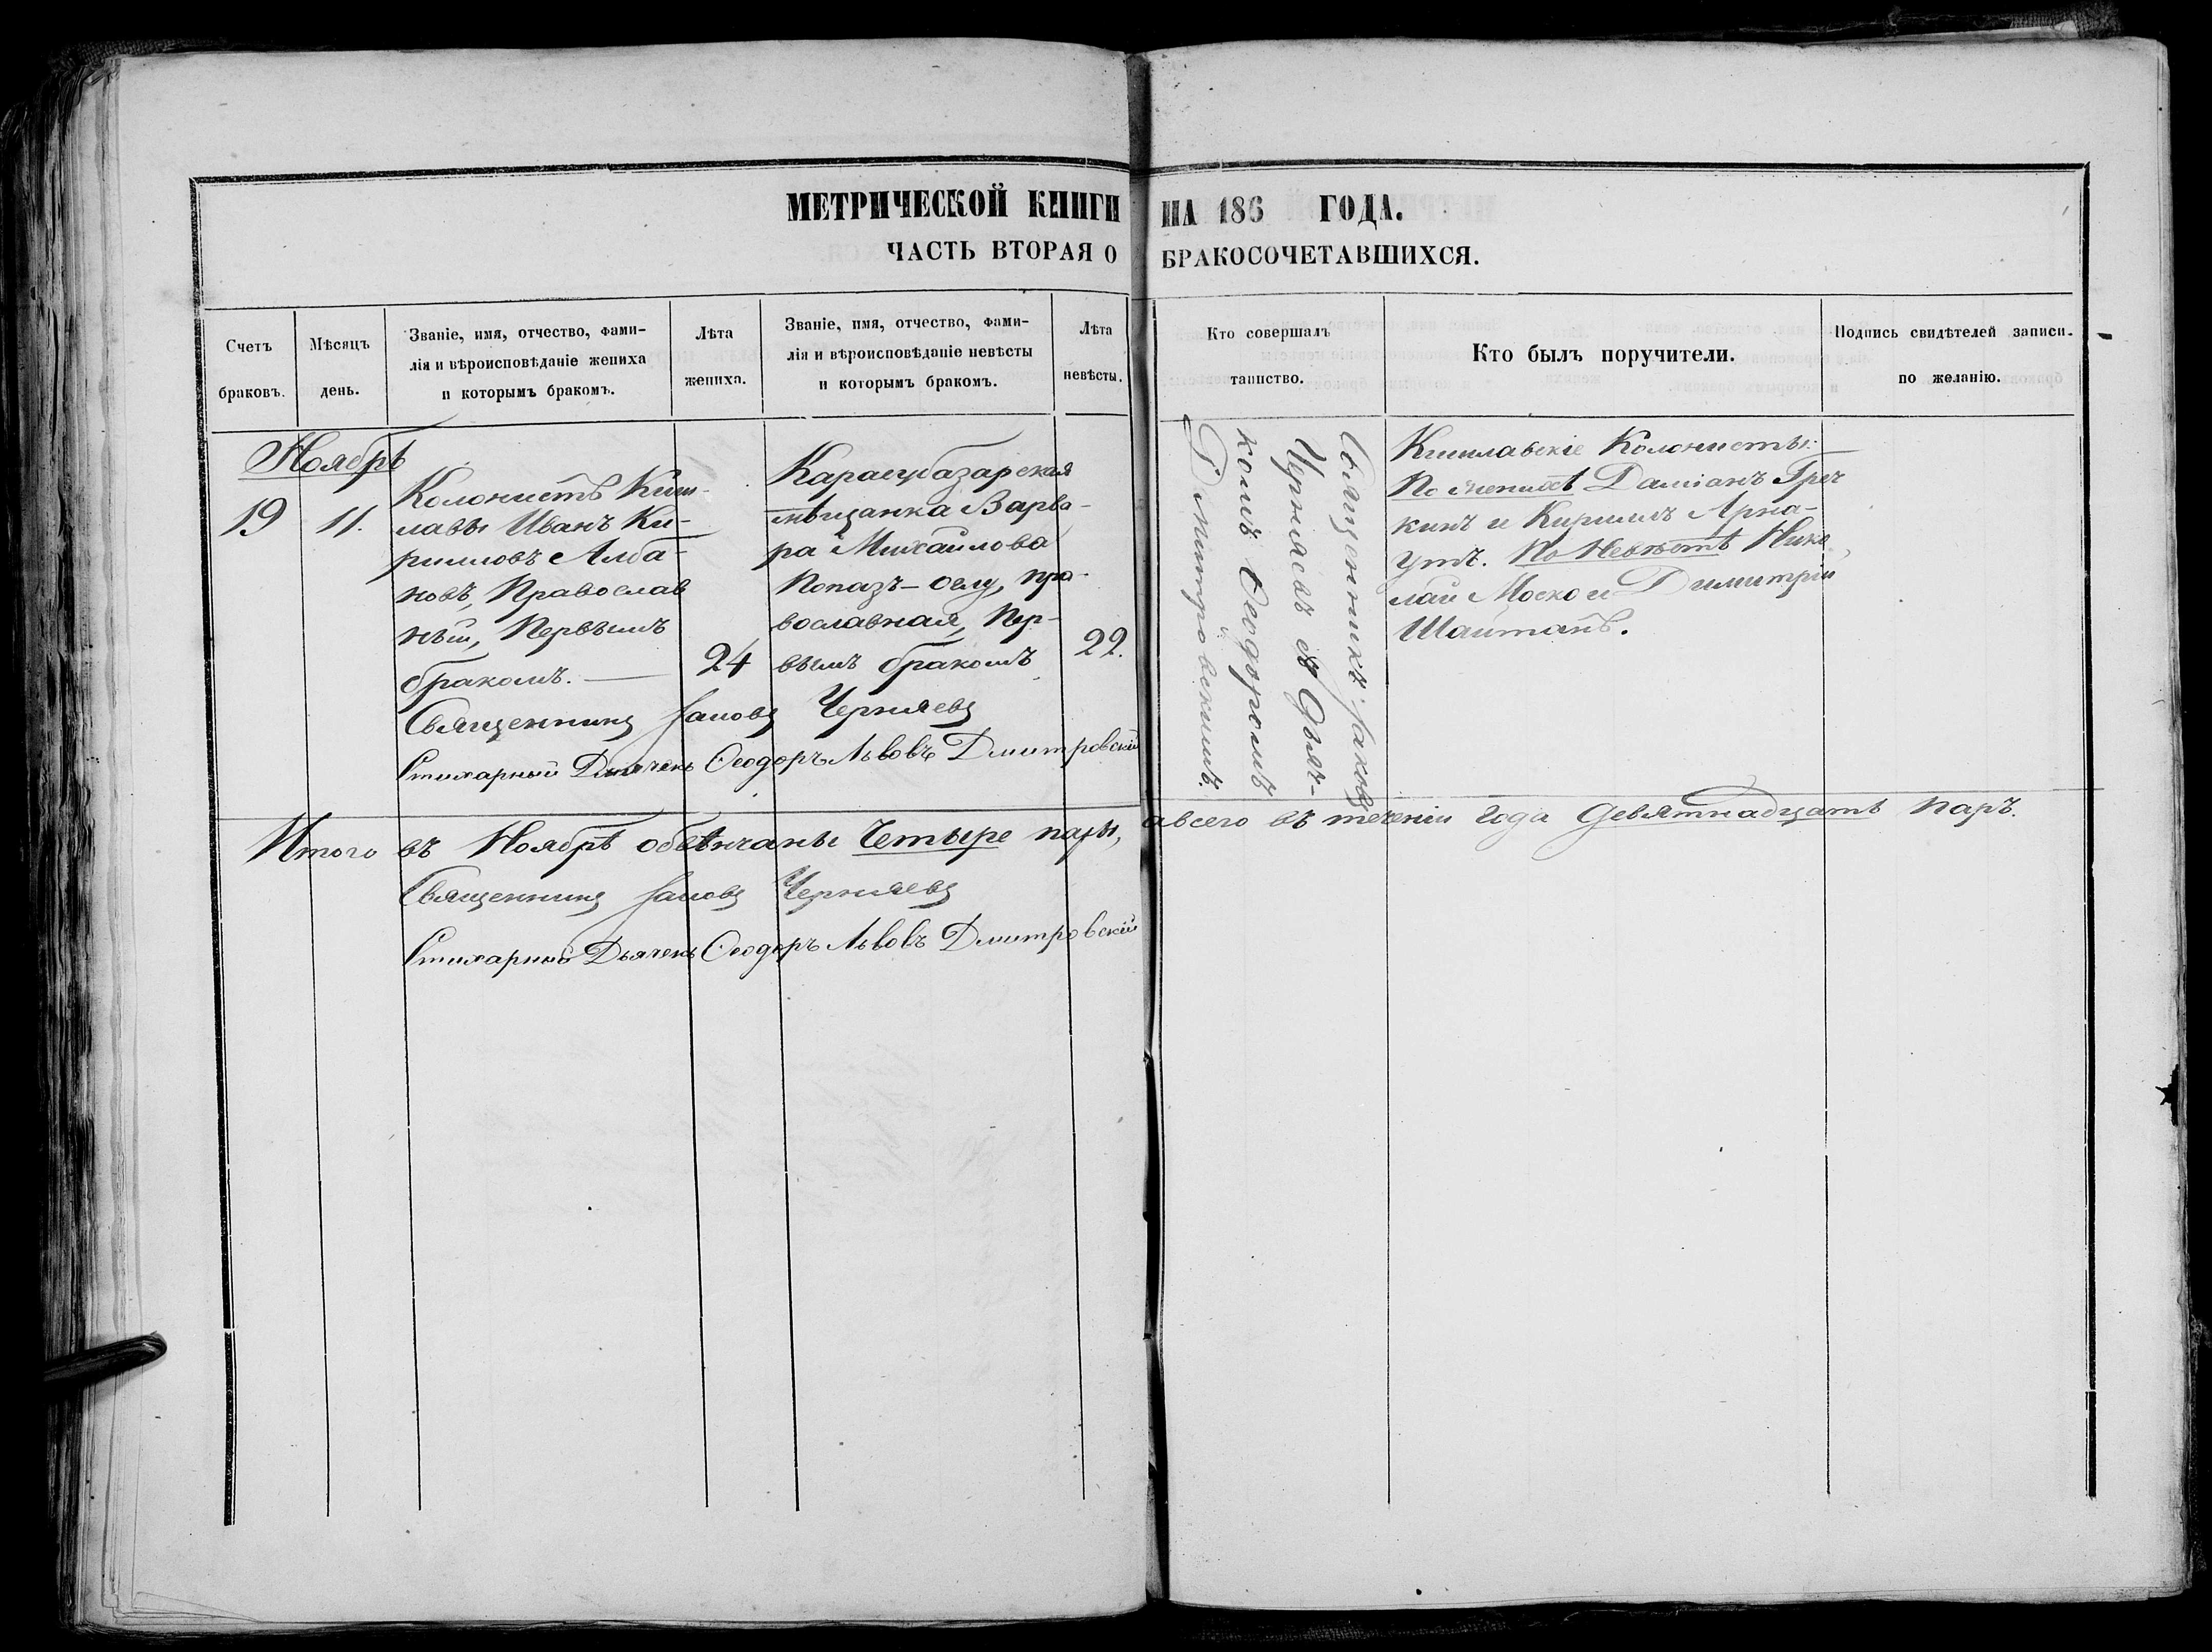 МЕТРИЧЕСКОЙ КНИГИ НА 186 ГОДА.
ЧАСТЬ ВТОРАЯ О БРАКОСОЧЕТАВШИХСЯ.
Счетъ
браковъ.
Мѣсяцъ
день.
Званіе, имя, отчество, фами-
лія и вѣроисповѣданіе жениха
и которымъ бракомъ.
Лѣта
жениха.
Званіе, имя, отчество, фами-
лія и вѣроисповѣданіе невѣсты
и которымъ бракомъ.
Лѣта
невѣсты.
Кто совершалъ
таинство.
Кто былъ поручители.
Подпись свидѣтелей записи.
по желанію.
Ноябрь
19
11.
Колонистъ Киш-
лавы Иванъ Ки-
рилловъ Алба-
новъ, Православ
ный, Первымъ
бракомъ.
24
Карасубазарская
мѣщанка Варва-
ра Михайлова
Попазъ-оглу, пра-
вославная, Пер-
вымъ бракомъ
22.
Священникъ Іаковъ
Чернявъ съ Дьяч-
комъ Ѳеодоромъ
Дмитровскимъ.
Кишлавскіе Колонисты:
По Женихѣ Даміанъ Греч
кинъ и Кириллъ Арна-
утъ. По Невѣстѣ Нико
лай Моско и Димитрій
Шайтанъ.
Священникъ Іаковъ Черняевъ
Стихарный Дьячекъ Ѳеодоръ Львовъ Дмитровскій
Итого въ Ноябрѣ обвѣнчаны Четыре пары, а всего въ теченіи года девятнадцать паръ.
Священникъ Іаковъ Черняевъ
Стихарный Дьячекъ Ѳеодоръ Львовъ Дмитровскій